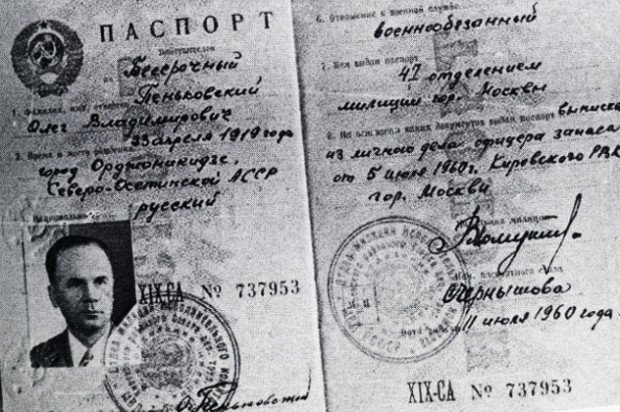 ПАСПОРТ
Бессрочный
Пеньковский
1. Фамилия, имя, отчество
Олег Владимирович
23 апреля 1919 года
2. Время и место рождения
город Орджоникидзе,
Северо-Осетинской АССР
русский
XIX-СА № 737953
О. Пеньковский
6. Отношение к военной службе
военнообязанный
7. Кем выдан паспорт
41 отделением
милиции гор. Москвы
8. На основании каких документов выдан паспорт выписка
из личного дела офицера запаса
от 5 июля 1960г. Кировского РВК
гор. Москвы
Чернышова
11 июля 1960 года.
XIX-СА № 737953